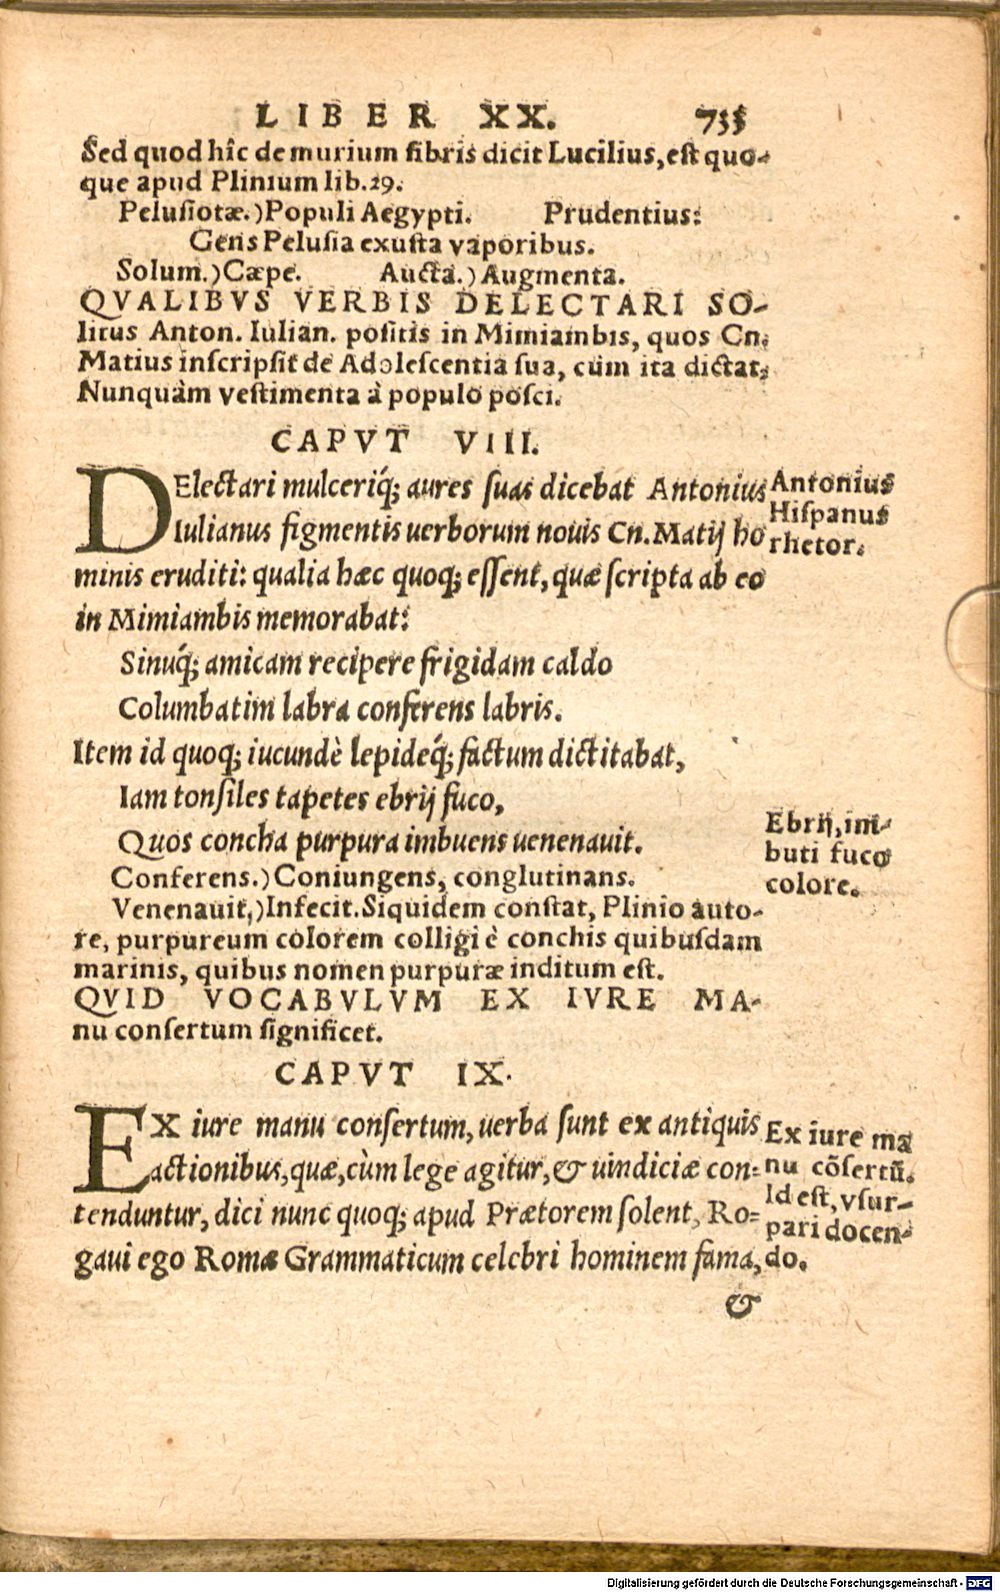 LIBER XX. 733
Sed quod hîc de murium fibris dicit Lucilius, est quo-
que apud Plinium lib.29.
Pelusiotæ.) Populi Aegypti. Prudentius:
Gens Pelusia exusta vaporibus.
Solum.) Cæpe. Aucta.) Augmenta.
QVALIBVS VERBIS DELECTARI SO-
litus Anton. Iulian. positis in Mimiambis, quos Cn.
Matius inscripsit de Adolescentia sua, cùm ita dictat:
Nunquàm vestimenta à populo posci.
CAPVT VIII.
DElectari mulceriq́; aures suas dicebat Antonius
Iulianus figmentis uerborum nouis Cn. Matij ho
minis eruditi: qualia hæc quoq; essent, quæ scripta ab eo
in Mimiambis memorabat:
Sinuq́; amicam recipere frigidam caldo
Columbatim labra conferens labris.
Item id quoq; iucundè lepideq́; factum dictitabat,
Iam tonsiles tapetes ebrij fuco,
Quos concha purpura imbuens uenenauit.
Conferens.) Coniungens, conglutinans.
Venenauit.) Infecit. Siquidem constat, Plinio auto-
re, purpureum colorem colligi è conchis quibusdam
marinis, quibus nomen purpuræ inditum est.
QVID VOCABVLVM EX IVRE MA-
nu consertum significet.
CAPVT IX.
EX iure manu consertum, uerba sunt ex antiquis
actionibus, quæ, cùm lege agitur, & uindiciæ con-
tenduntur, dici nunc quoq; apud Prætorem solent, Ro-
gaui ego Romæ Grammaticum celebri hominem fama,
&
Antonius
Hispanus
rhetor.
Ebrij, im-
buti fuco
colore.
Ex iure ma
nu cõsertũ.
Id est, vsur-
pari docen-
do.
Digitalisierung gefördert durch die Deutsche Forschungsgemeinschaft - DFG